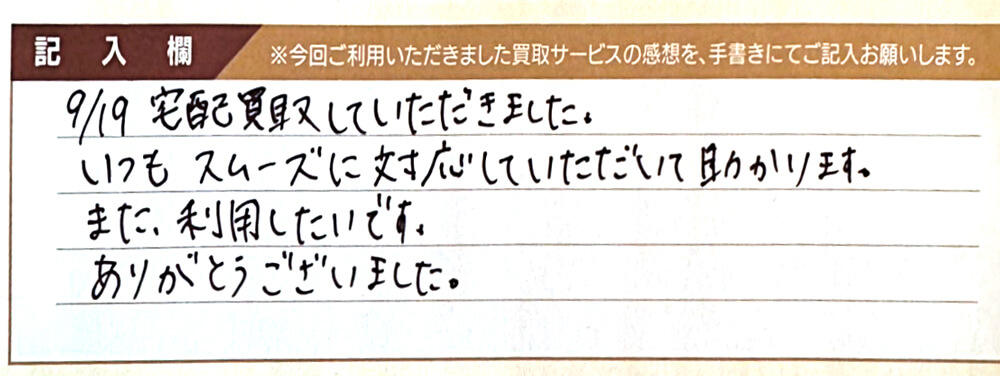 記入欄
※今回ご利用いただきました買取サービスの感想を、手書きにてご記入お願いします。
9/19 宅配買取していただきました。
いつも スムーズに対応していただいて助かります。
また、利用したいです。
ありがとうございました。